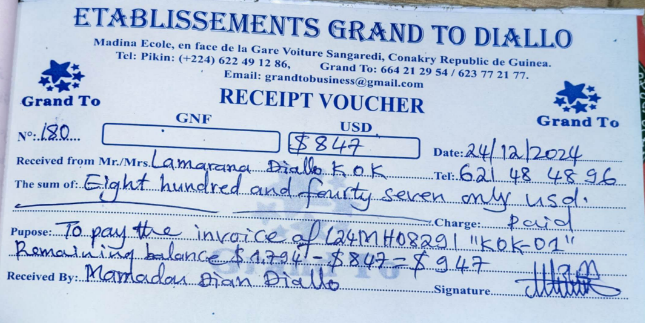 ETABLISSEMENTS GRAND TO DIALLO
Madina Ecole, en face de la Gare Voiture Sangaredi, Conakry Republic de Guinea.
Tel: Pikin: (+224) 622 49 12 86, Grand To: 664 21 29 54 / 623 77 21 77.
Email: grandtobusiness@gmail.com
Grand To RECEIPT VOUCHER Grand To
GNF USD
Nº: 180 $847 Date: 24/12/2024
Received from Mr./Mrs. Lamarana Diallo KOK Tel: 621 48 48 96
The sum of: Eight hundred and fourty seven only usd.
Charge: paid
Pupose: To pay the invoice of L24MH08291 "KOK-01"
Remaining balance $1.794 - $847 = $947
Received By: Mamadou Dian Diallo Signature